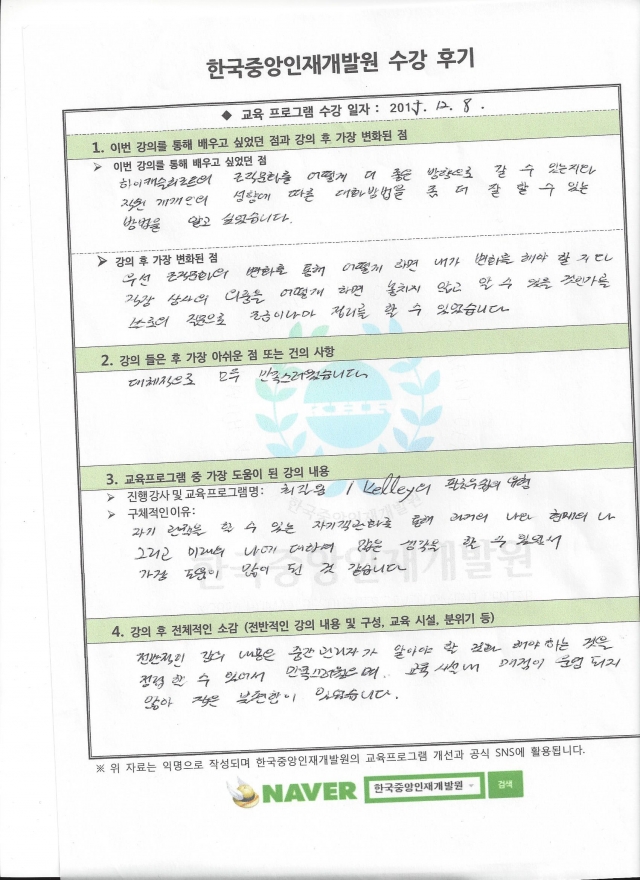 한국중앙인재개발원 수강 후기
◆ 교육 프로그램 수강 일자 : 2015. 12. 8.
1. 이번 강의를 통해 배우고 싶었던 점과 강의 후 가장 변화된 점
➢ 이번 강의를 통해 배우고 싶었던 점
조직문화를 어떻게 더 좋은 방향으로 갈 수 있는지와
직원 개개인의 성향에 따른 대화방법을 좀 더 잘 할 수 있는
방법을 알고 싶었습니다.
➢ 강의 후 가장 변화된 점
우선 조직문화의 변화를 통해 어떻게 하면 내가 변화를 해야 할 지와
직장 상사의 의중을 어떻게 하면 놓치지 않고 알 수 있을 것인가를
스스로의 질문으로 조금이나마 정리를 할 수 있었습니다
2. 강의 들은 후 가장 아쉬운 점 또는 건의 사항
대체적으로 모두 만족스러웠습니다.
KHR
3. 교육프로그램 중 가장 도움이 된 강의 내용
➢ 진행강사 및 교육프로그램명: 최직용 / Kelley의
➢ 구체적인 이유:
자기 관찰을 할 수 있는 자기 통해 과거의 나와 현재의 나
그리고 미래의 나에 대하여 많은 생각을 할 수 있어서
가장 도움이 많이 된 것 같습니다
한국중앙인재개발원
4. 강의 후 전체적인 소감 (전반적인 강의 내용 및 구성, 교육 시설, 분위기 등)
전반적인 강의 내용은 중간 관리자가 알아야 할 것과 해야 하는 것을
점검 할 수 있어서 만족스러웠으며. 교육 시설내 매점이 운영 되지
않아 작은 불편함이 있었습니다.
※ 위 자료는 익명으로 작성되며 한국중앙인재개발원의 교육프로그램 개선과 공식 SNS에 활용됩니다.
NAVER 한국중앙인재개발원 검색